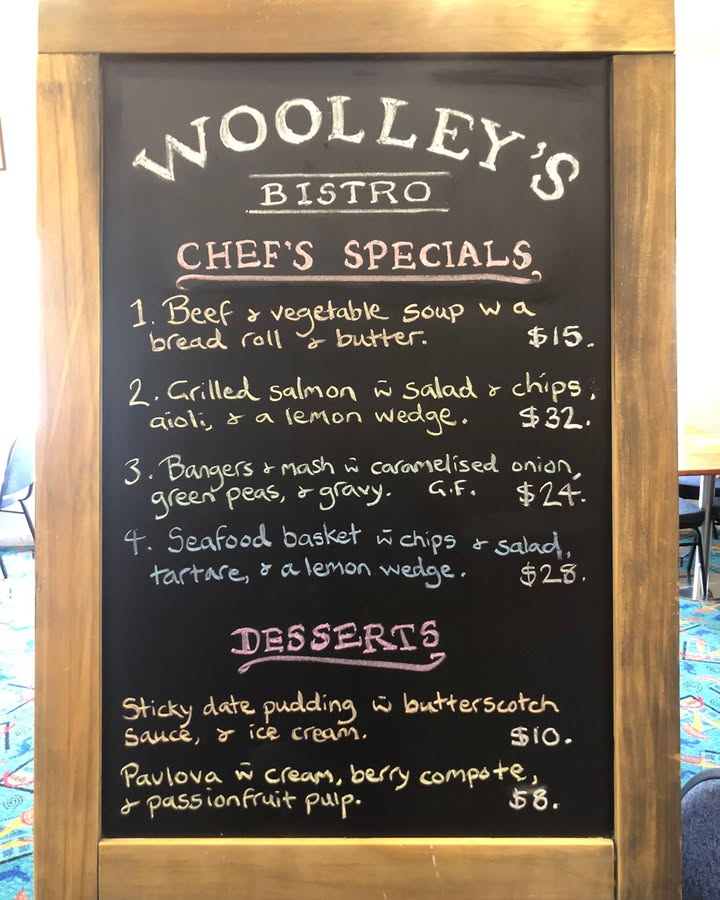 WOOLLEY'S
BISTRO
CHEF'S SPECIALS
1. Beef & vegetable soup w a
bread roll & butter. $15.
2. Grilled salmon w̄ salad & chips,
aioli, & a lemon wedge. $32.
3. Bangers & mash w̄ caramelised onion,
green peas, & gravy. G.F. $24.
4. Seafood basket w̄ chips & salad,
tartare, & a lemon wedge. $28.
DESSERTS
Sticky date pudding w̄ butterscotch
sauce, & ice cream. $10.
Pavlova w̄ cream, berry compote,
& passionfruit pulp. $8.